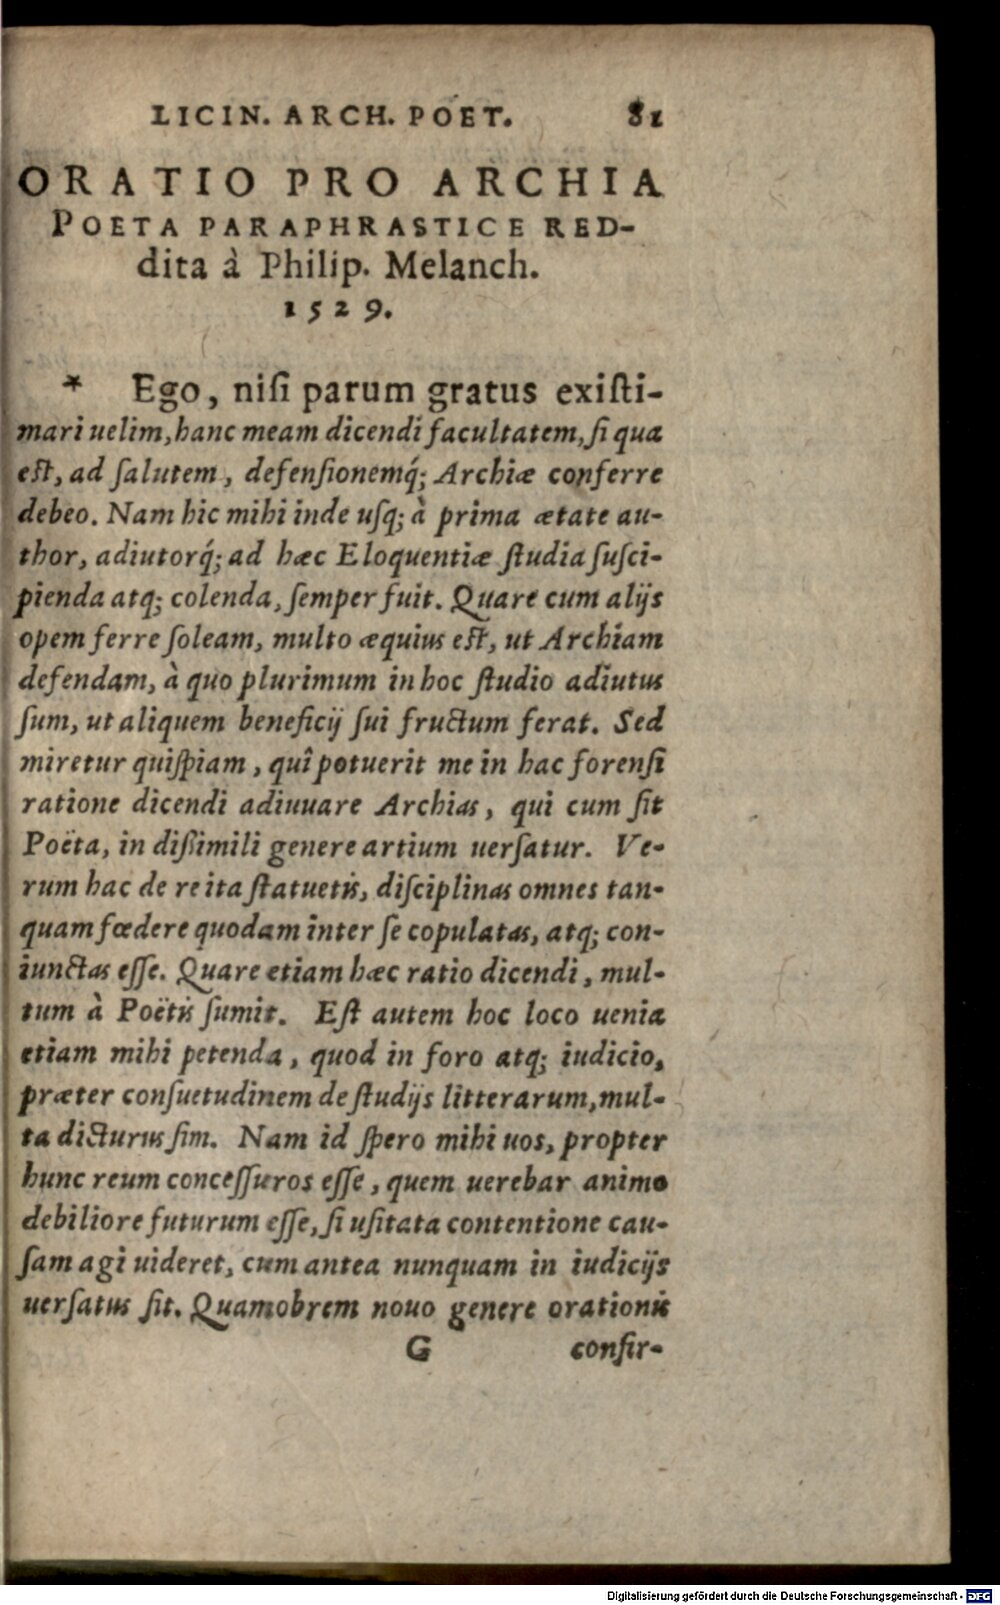 LICIN. ARCH. POET. 81
ORATIO PRO ARCHIA
POETA PARAPHRASTICE RED-
dita à Philip. Melanch.
1529.
* Ego, niſi parum gratus exiſti-
mari uelim, hanc meam dicendi facultatem, ſi qua
eſt, ad ſalutem, defenſionemq́; Archiæ conferre
debeo. Nam hic mihi inde uſq; à prima ætate au-
thor, adiutorq́; ad hæc Eloquentiæ ſtudia ſuſci-
pienda atq; colenda, ſemper fuit. Quare cum alijs
opem ferre ſoleam, multo æquius eſt, ut Archiam
defendam, à quo plurimum in hoc ſtudio adiutus
ſum, ut aliquem beneficij ſui fructum ferat. Sed
miretur quiſpiam, quî potuerit me in hac forenſi
ratione dicendi adiuuare Archias, qui cum ſit
Poëta, in diſsimili genere artium uerſatur. Ve-
rum hac de re ita ſtatuetis, diſciplinas omnes tan-
quam fœdere quodam inter ſe copulatas, atq; con-
iunctas eſſe. Quare etiam hæc ratio dicendi, mul-
tum à Poëtis ſumit. Eſt autem hoc loco uenia
etiam mihi petenda, quod in foro atq; iudicio,
præter conſuetudinem de ſtudijs litterarum, mul-
ta dicturus ſim. Nam id ſpero mihi uos, propter
hunc reum conceſſuros eſſe, quem uerebar animo
debiliore futurum eſſe, ſi uſitata contentione cau-
ſam agi uideret, cum antea nunquam in iudicijs
uerſatus ſit. Quamobrem nouo genere orationis
G confir-
Digitalisierung gefördert durch die Deutsche Forschungsgemeinschaft - DFG